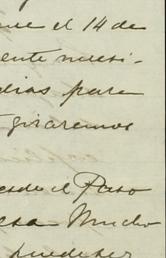 ue el 14 de
ente nuesi-
dias para
giraremos
esde el Paso
esa Mucho
puede ser